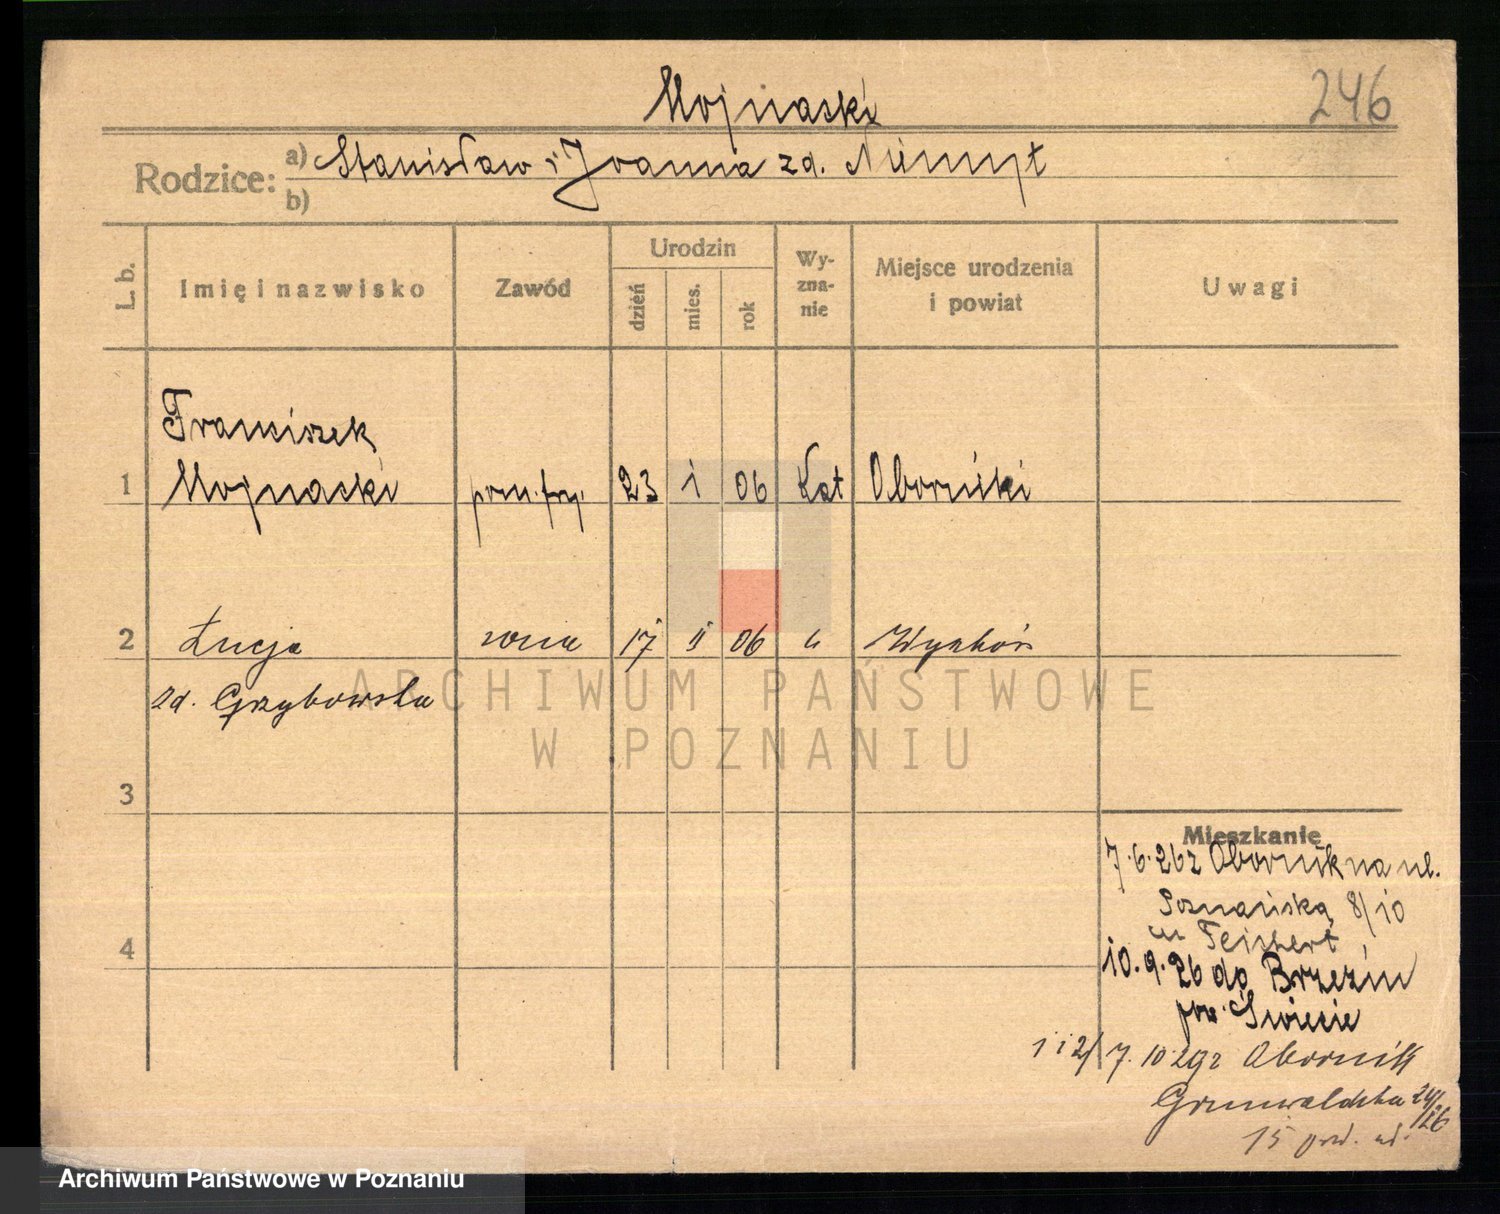 Mojnaski
246
Rodzice: a) Stanisław i Joanna zd. Niemyt
b)
L. b. Imię i nazwisko Zawód Urodzin dzień mies. rok Wyznanie Miejsce urodzenia i powiat Uwagi
Franciszek
1 Mojnaski pom. fry. 23 I 06 Kat Oborniki
2 Łucja żona 17 II 06 "
zd. Grzybowska
ARCHIWUM PAŃSTWOWE
W POZNANIU
3
Mieszkanie
7.6.26 z Obornik na ul.
Poznańska 8/10
m Teichert
4
10.9.26 do Brzezin
pow. Świecie
1 i 2/ 7.10.29 z Obornik
Grunwaldzka 24/26
15
Archiwum Państwowe w Poznaniu